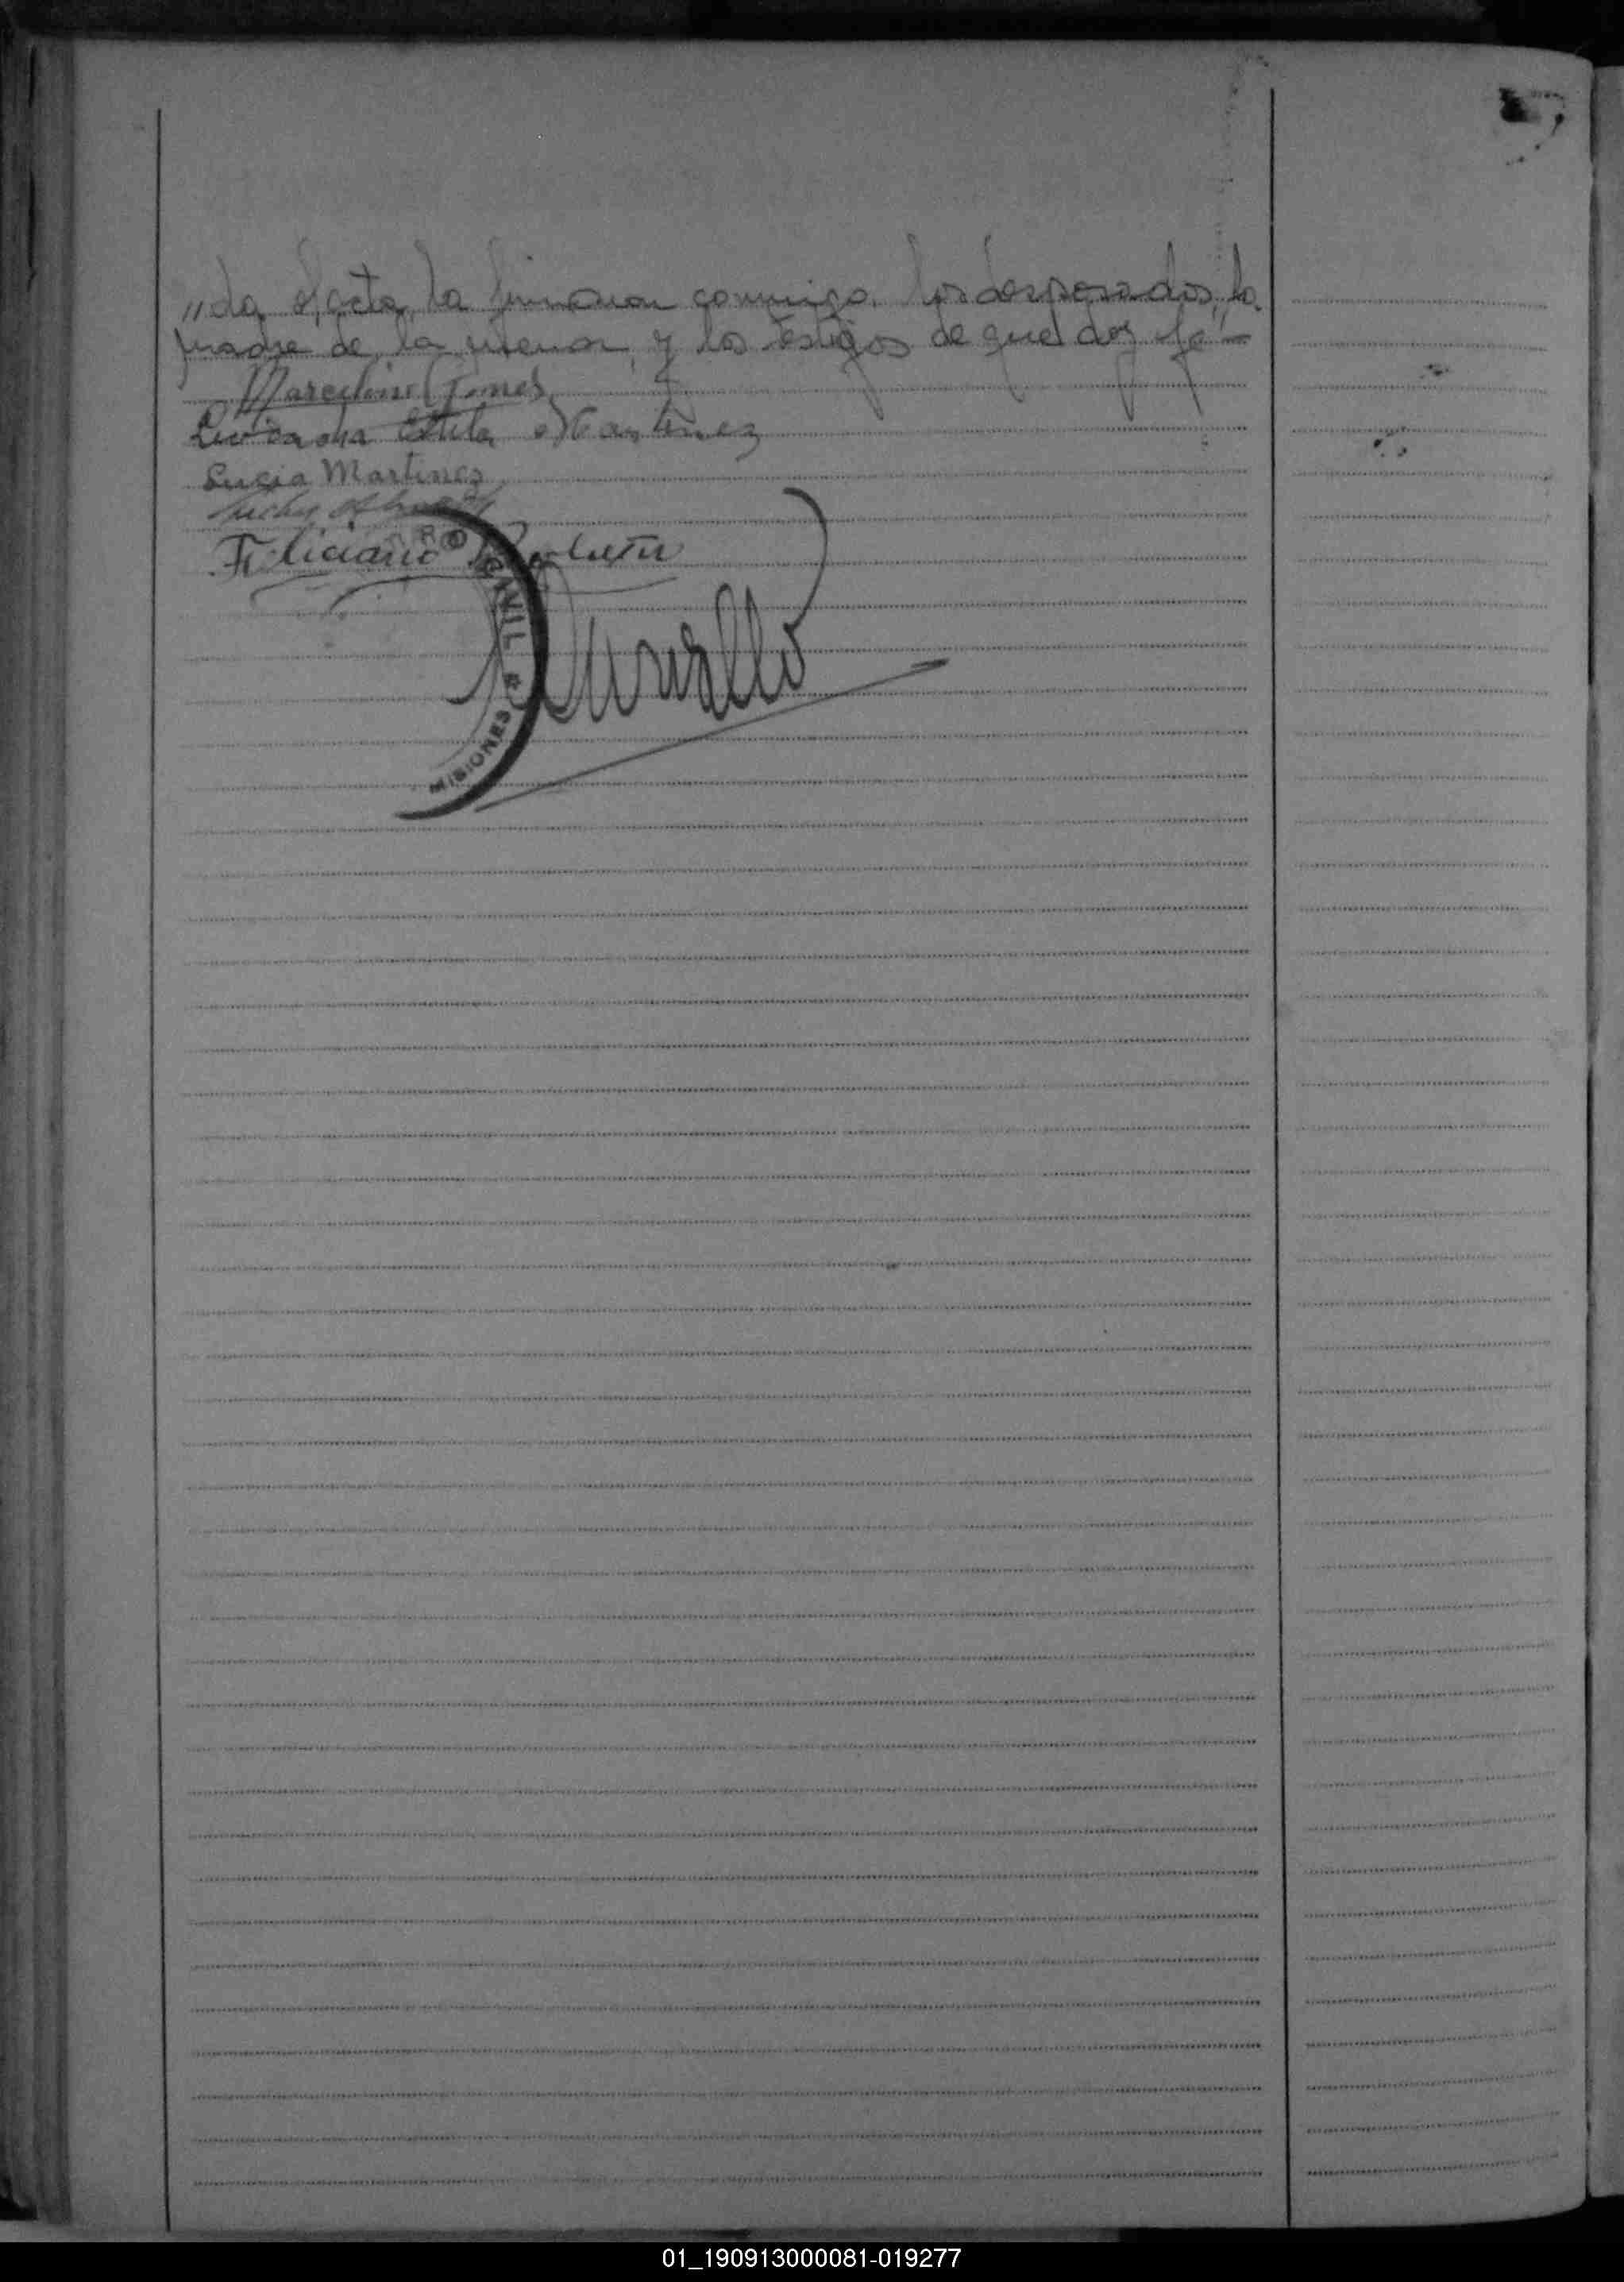 „da el acta, la firmaron conmigo, los desposados, la
madre de la menor, y los testigos de que doy fé"—
Marcelino Gomes
Estela Martinez
Lucia Martinez
Feliciano
CIVIL
MISIONES
01_190913000081-019277